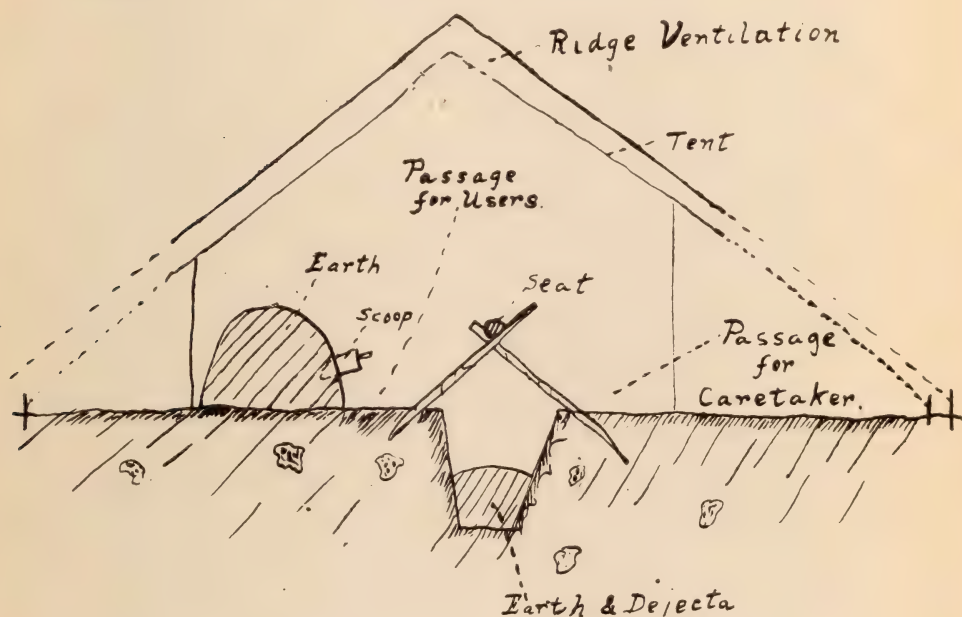 Ridge Ventilation
Tent
Passage
for Users.
Earth
Seat
Scoop
Passage
for
Caretaker.
Earth & Dejecta